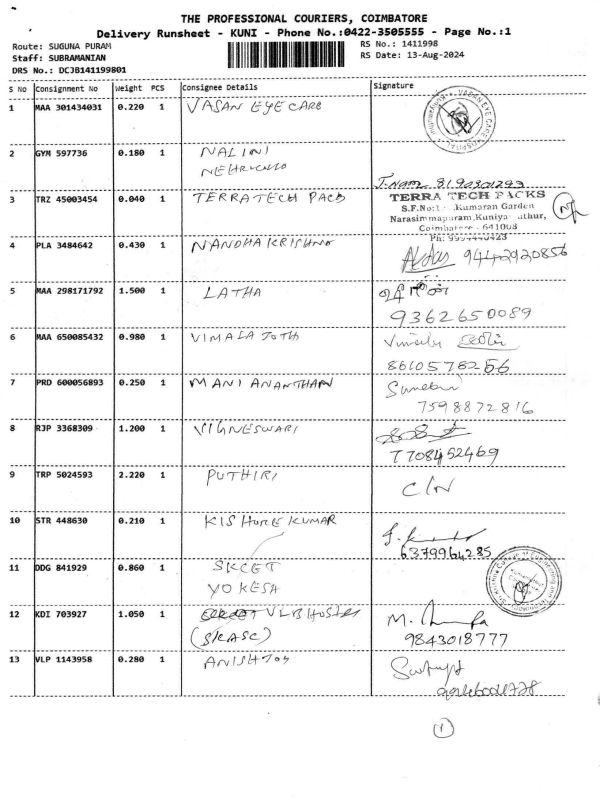 THE PROFESSIONAL COURIERS, COIMBATORE
Delivery Runsheet - KUNI - Phone No.:0422-3505555 - Page No.:1
Route: SUGUNA PURAM
RS No.: 1411998
Staff: SUBRAMANIAN
RS Date: 13-Aug-2024
DRS No.: DCJB141199801
S No Consignment No Weight PCS Consignee Details Signature
1 MAA 301434031 0.220 1 VASAN EYE CARE
2 GYM 597736 0.180 1 NALINI
NEHRU
3 TRZ 45003454 0.040 1 TERRATECH PACS
TERRA TECH PACKS
Kumaran Garden
Narasimmapuram,
Coimbatore - 641008
4 PLA 3484642 0.430 1 NANDHA KRISHNA
9442920856
5 MAA 298171792 1.500 1 LATHA
9362650089
6 MAA 650085432 0.980 1 VIMALA JOTH
8610578256
7 PRD 600056893 0.250 1 MANI ANANTHAN
7598872816
8 RJP 3368309 1.200 1 VIGNESWARI
7708452469
9 TRP 5024593 2.220 1 PUTHIRI
C/N
10 STR 448630 0.210 1 KISHORE KUMAR
6379964285
11 DDG 841929 0.860 1 SKCET
YOKESH
12 KDI 703927 1.050 1 VLB HOSTEL
(SKASC)
9843018777
13 VLP 1143958 0.280 1 ANISH JOS
1